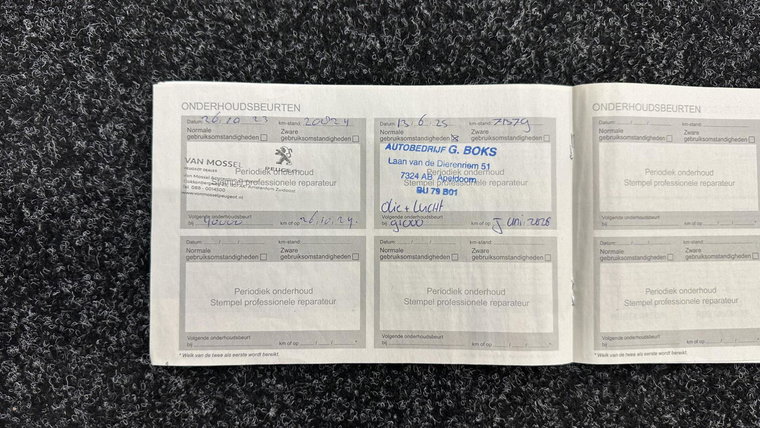 ONDERHOUDSBEURTEN
Datum: 26.10.23 km-stand: 20824
Normale gebruiksomstandigheden
Zware gebruiksomstandigheden
VAN MOSSEL
PEUGEOT DEALER
Periodiek onderhoud
Stempel professionele reparateur
www.vanmosselpeugeot.nl
Volgende onderhoudsbeurt
bij 40000 km of op 26.10.24.
Datum: 13.6.25 km-stand:
Normale gebruiksomstandigheden
Zware gebruiksomstandigheden
AUTOBEDRIJF G. BOKS
Laan van de Dierenriem 51
Periodiek onderhoud
7324 AB Apeldoorn
Stempel professionele reparateur
BU 79 B01
olie + lucht
Volgende onderhoudsbeurt
bij 91000 km of op Juni 2026
Datum: km-stand:
Normale gebruiksomstandigheden
Zware gebruiksomstandigheden
Periodiek onderhoud
Stempel professionele reparateur
Volgende onderhoudsbeurt
bij km of op *
Datum: km-stand:
Normale gebruiksomstandigheden
Zware gebruiksomstandigheden
Periodiek onderhoud
Stempel professionele reparateur
Volgende onderhoudsbeurt
bij km of op *
* Welk van de twee als eerste wordt bereikt.
ONDERHOUDSBEURTEN
Datum: km-stand:
Normale gebruiksomstandigheden
Zware
Periodiek onderhoud
Stempel professionele reparateur
Volgende onderhoudsbeurt
bij km of op
Datum: km-stand:
Normale gebruiksomstandigheden
Zware
Periodiek onderhoud
Stempel professionele reparateur
Volgende onderhoudsbeurt
bij km of op
* Welk van de twee als eerste wordt bereikt.